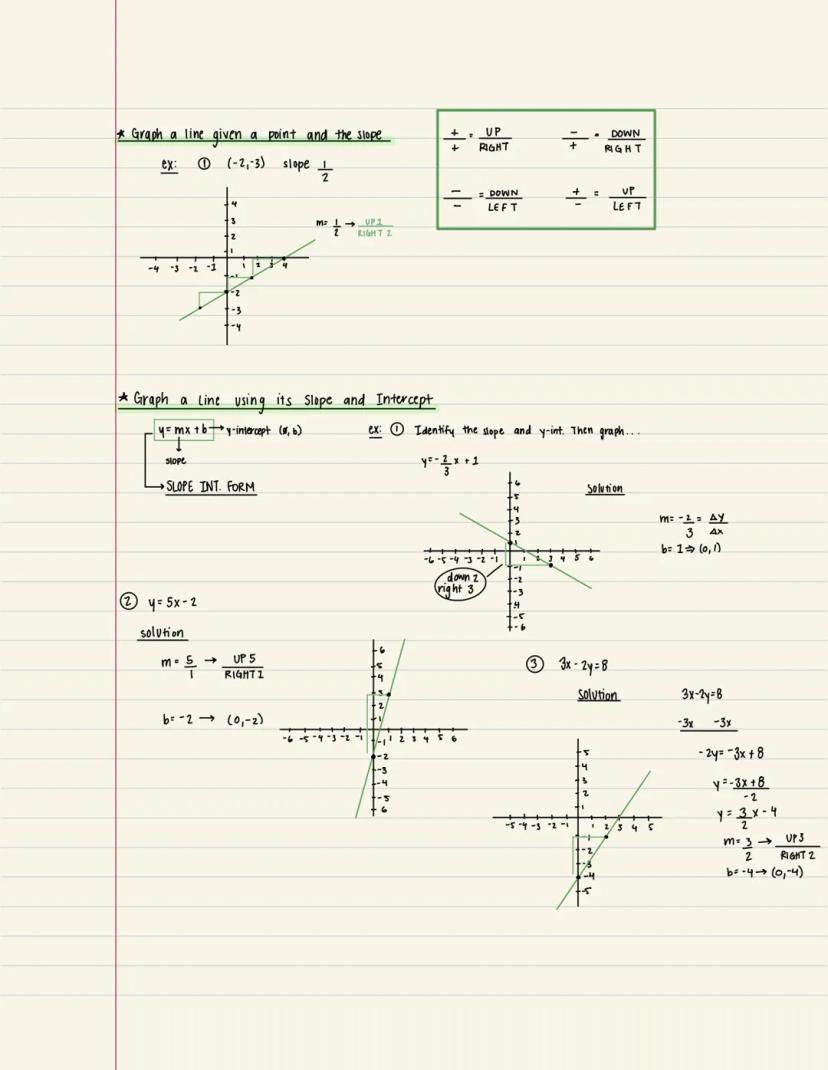 ★ Graph a line given a point and the slope
ex: ① (-2,-3) slope 1/2
+/+ = UP/RIGHT -/+ = DOWN/RIGHT
-/- = DOWN/LEFT +/- = UP/LEFT
m= 1/2 → UP 1/RIGHT 2
4
3
2
1
-4 -3 -2 -1 1 2 3 4
-1
-2
-3
-4
★ Graph a Line using its Slope and Intercept
y= mx + b → y-intercept (0, b)
slope
SLOPE INT. FORM
ex: ① Identify the slope and y-int. Then graph...
y=-2/3 x + 1
Solution
m= -2/3 = Δy/Δx
b= 1 ⇒ (0,1)
6
5
4
3
2
1
-6 -5 -4 -3 -2 -1 1 2 3 4 5 6
-1
-2
-3
-4
-5
-6
down 2
right 3
② y= 5x - 2
solution
m= 5/1 → UP 5/RIGHT 1
b= -2 → (0,-2)
6
5
4
3
2
1
-6 -5 -4 -3 -2 -1 1 2 3 4 5 6
-1
-2
-3
-4
-5
6
③ 3x - 2y = 8
Solution
3x-2y=8
-3x -3x
-2y= -3x + 8
y= -3x + 8/-2
y= 3/2 x - 4
m= 3/2 → UP 3/RIGHT 2
b= -4 → (0,-4)
5
4
3
2
1
-5 -4 -3 -2 -1 1 2 3 4 5
-1
-2
-3
-4
-5